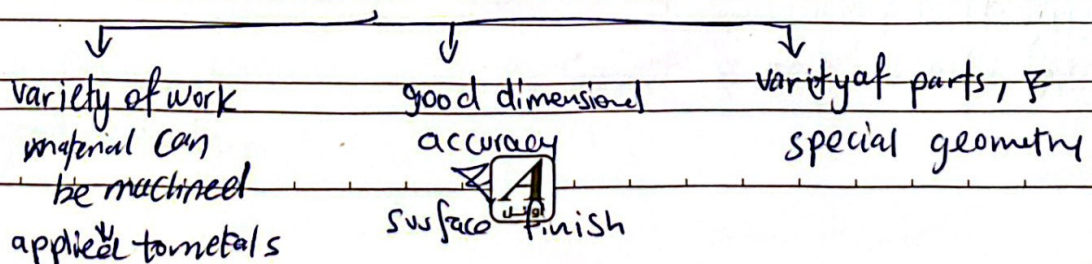 variety of work
material can
be machined
applied to metals
good dimensional
accuracy
&
surface finish
A
varity of parts, &
special geometry